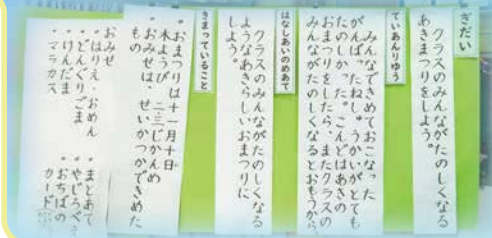 ぎだい
クラスのみんながたのしくなる
あきまつりをしよう。
ていあんりゆう
みんなできめておこなった
がんばったねしゅうかいがとても
たのしかった。こんどはあきの
おまつりをしたら、またクラスの
みんながたのしくなるとおもうから。
はなしあいのめあて
クラスのみんながたのしくなる
ようなあきらしいおまつりに
しよう。
きまっていること
・おまつりは十一月十日
木ようび 二、三じかんめ
・おみせは、せいかつかでできめた
もの
おみせ
・はりえ・おめん ・まとあて
・どんぐりごま ・やじろべえ
・けんだま ・おちばの
・マラカス カード